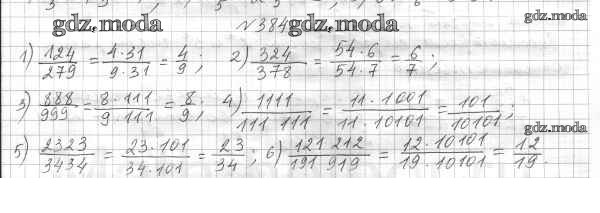 gdz.moda №384 gdz.moda gdz.moda
1) 124/279 = 4·31/9·31 = 4/9; 2) 324/378 = 54·6/54·7 = 6/7;
3) 888/999 = 8·111/9·111 = 8/9; 4) 1111/111 111 = 11·1001/11·10101 = 101/10101;
gdz.moda
5) 2323/3434 = 23·101/34·101 = 23/34; 6) 121 212/191 919 = 12·10101/19·10101 = 12/19.